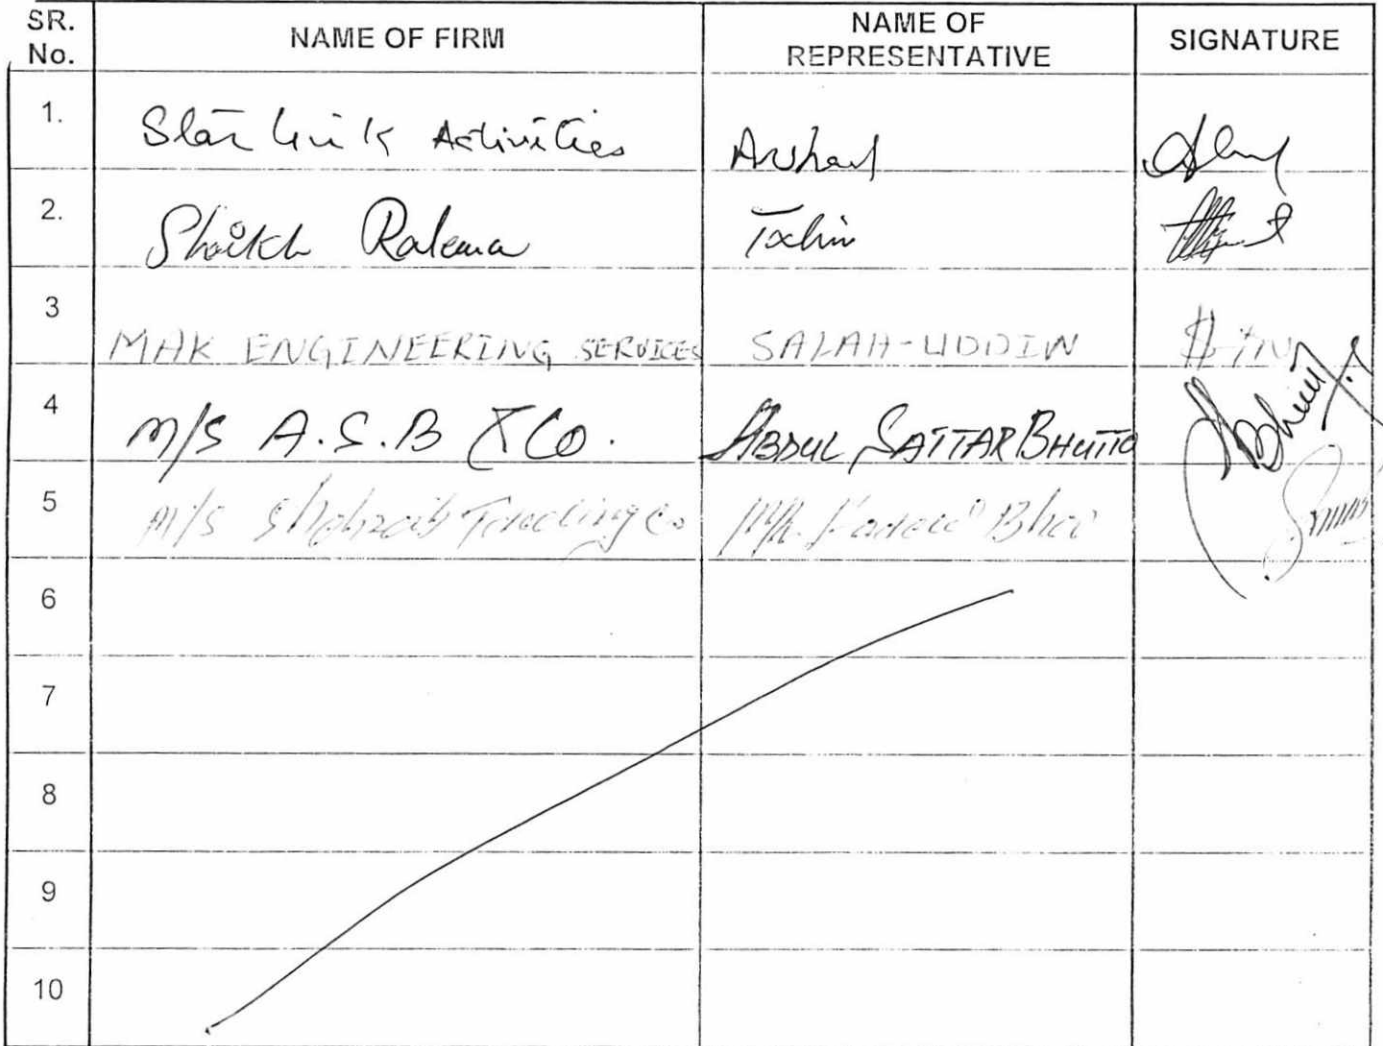 SR. No. NAME OF FIRM NAME OF REPRESENTATIVE SIGNATURE
1. Star Link Activities Arshad
2. Shaikh
3 MAK ENGINEERING SERVICES SALAH-UDDIN
4 M/S A.S.B & Co. ABDUL SATTAR BHUTTO
5 M/S Trading Co Mr. Bhai
6
7
8
9
10